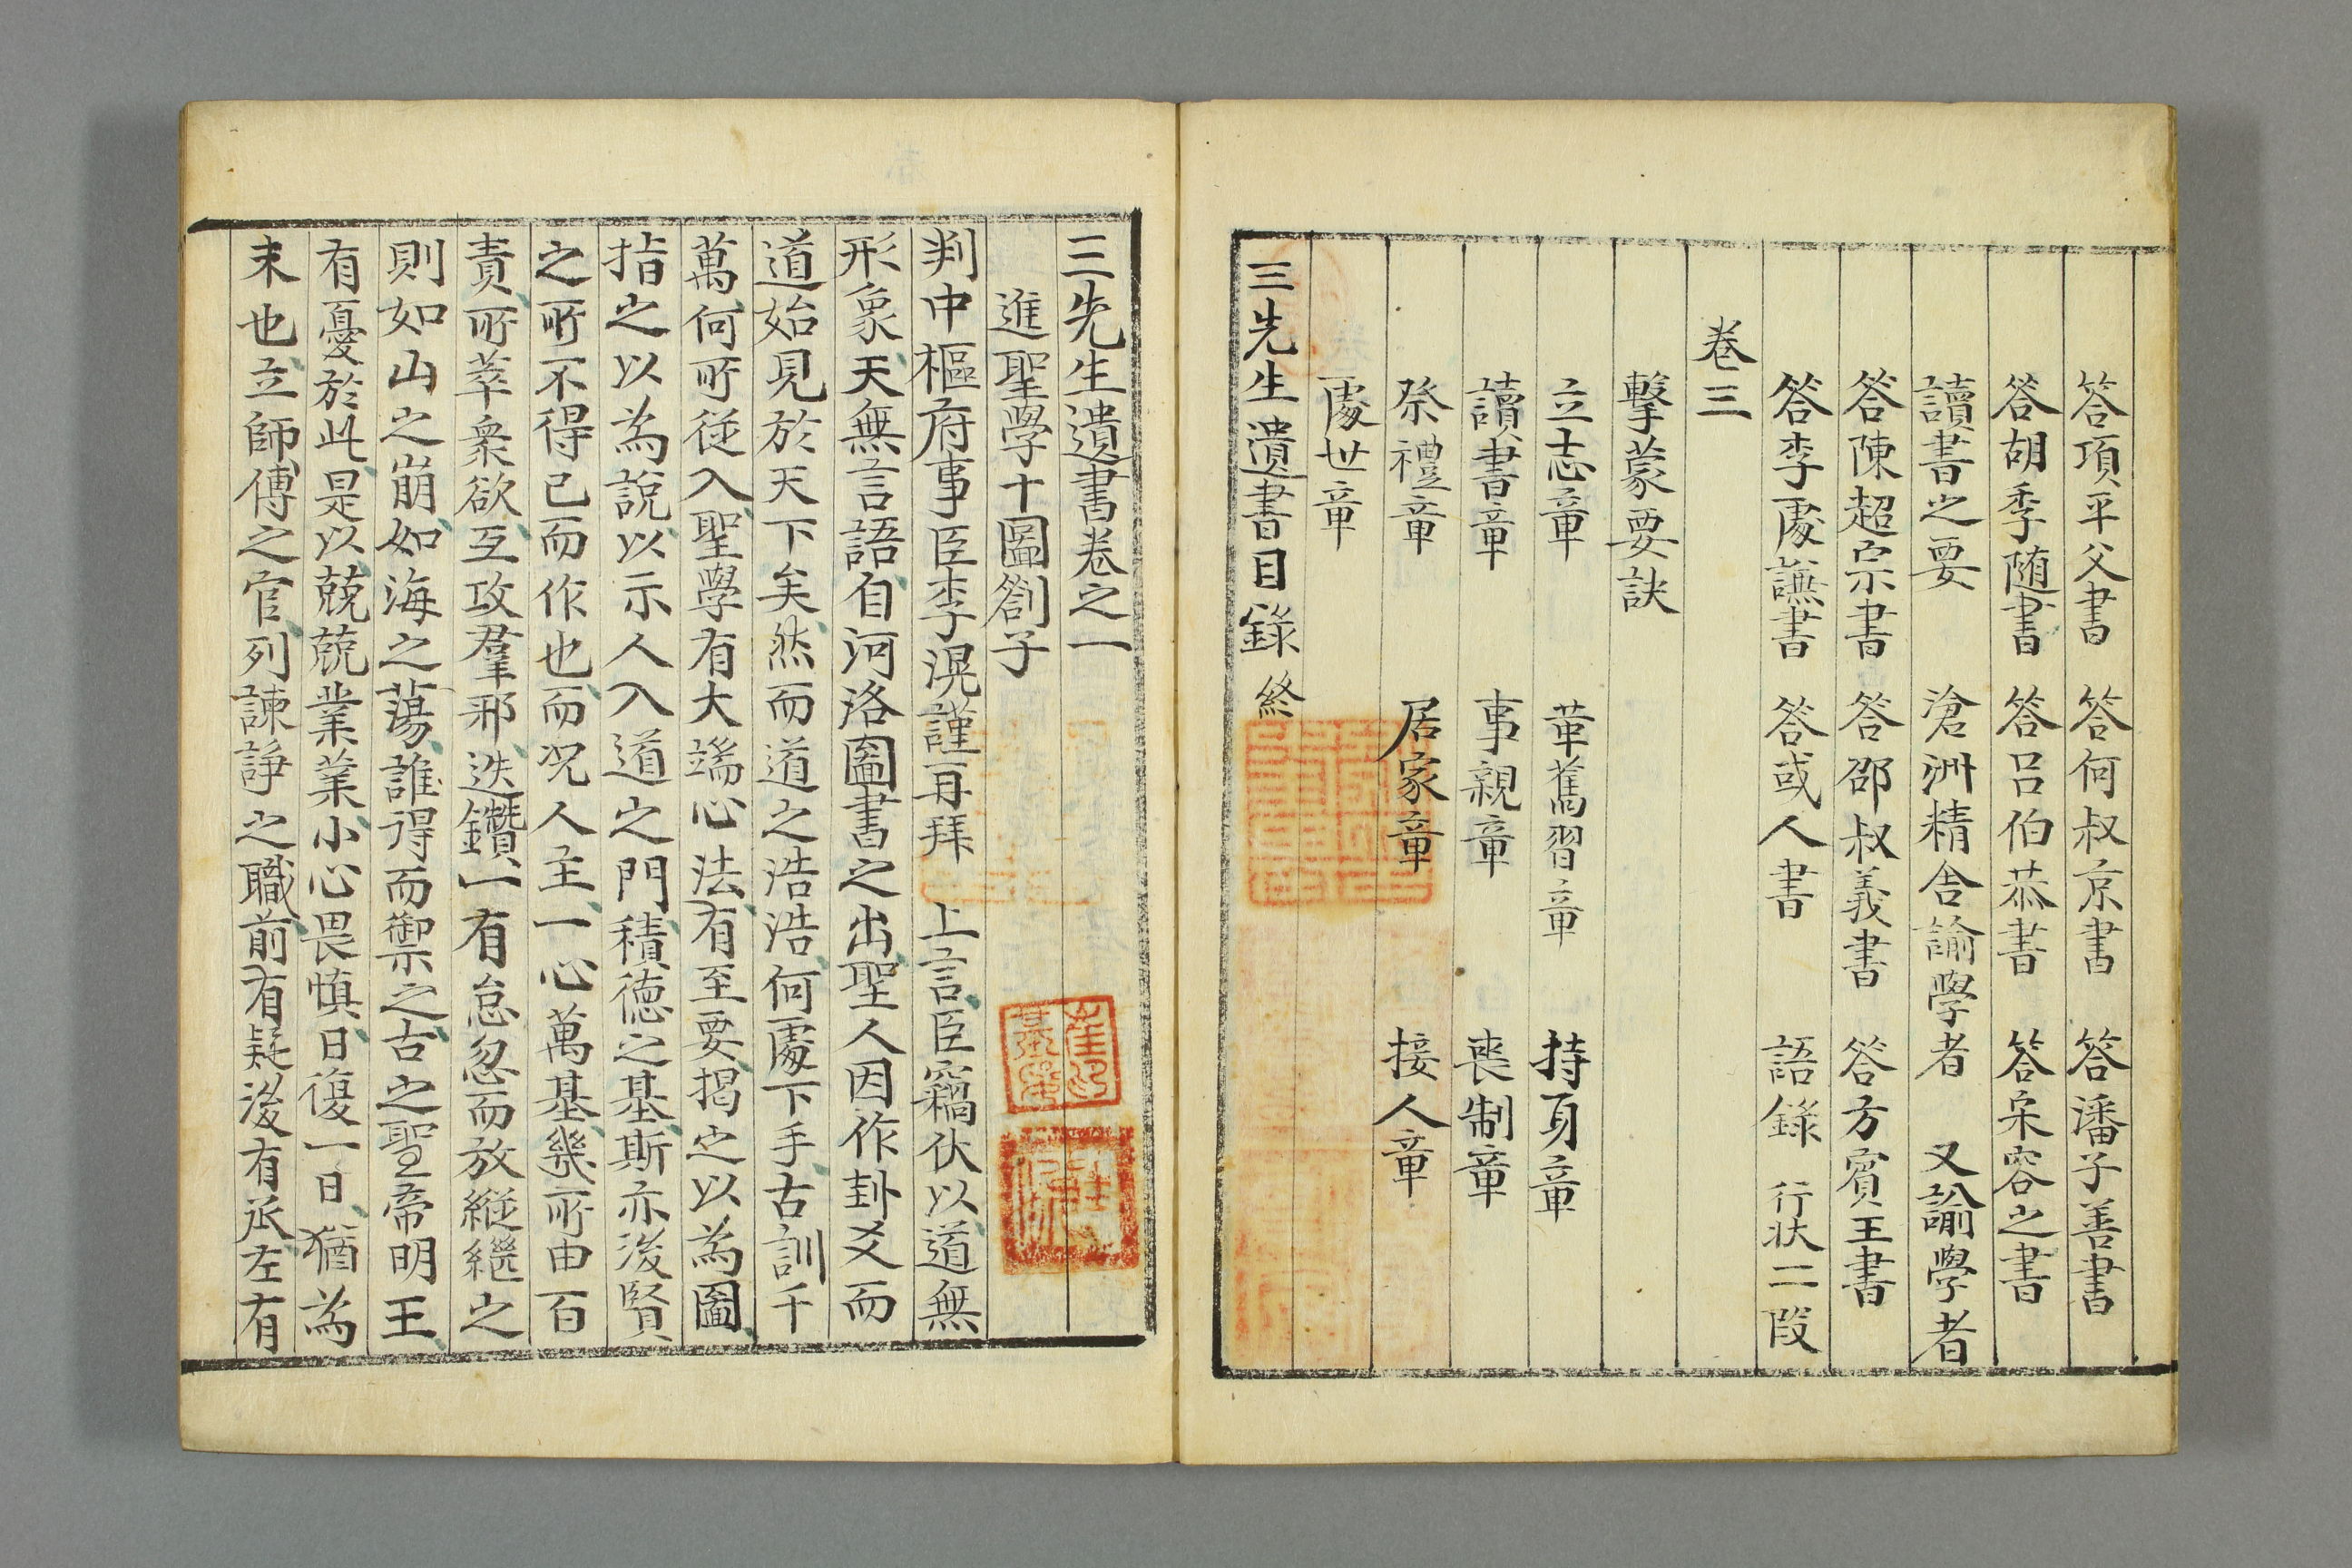 答項平父書 答何叔京書 答潘子善書
答胡季随書 答呂伯恭書 答宋容之書
讀書之要 滄洲精舍諭學者 又諭學者
答陳超宗書 答邵叔義書 答方賓王書
答李處謙書 答或人書 語錄 行狀二段
卷三
擊蒙要訣
立志章 革舊習章 持身章
讀書章 事親章 喪制章
祭禮章 居家章 接人章
處世章
三先生遺書目錄 終
三先生遺書卷之一
進聖學十圖劄子
判中樞府事臣李滉謹再拜 上言臣竊伏以道無
形象天無言語自河洛圖書之出聖人因作卦爻而
道始見於天下矣然而道之浩浩何處下手古訓千
萬何所從入聖學有大端心法有至要揭之以為圖
指之以為說以示人入道之門積德之基斯亦後賢
之所不得已而作也而况人主一心萬基幾所由百
責所萃衆欲互攻羣邪迭鑽一有怠忽而放縱繼之
則如山之崩如海之蕩誰得而禦之古之聖帝明王
有憂於此是以兢兢業業小心畏慎日復一日猶為
未也立師傅之官列諫諍之職前有疑後有丞左有